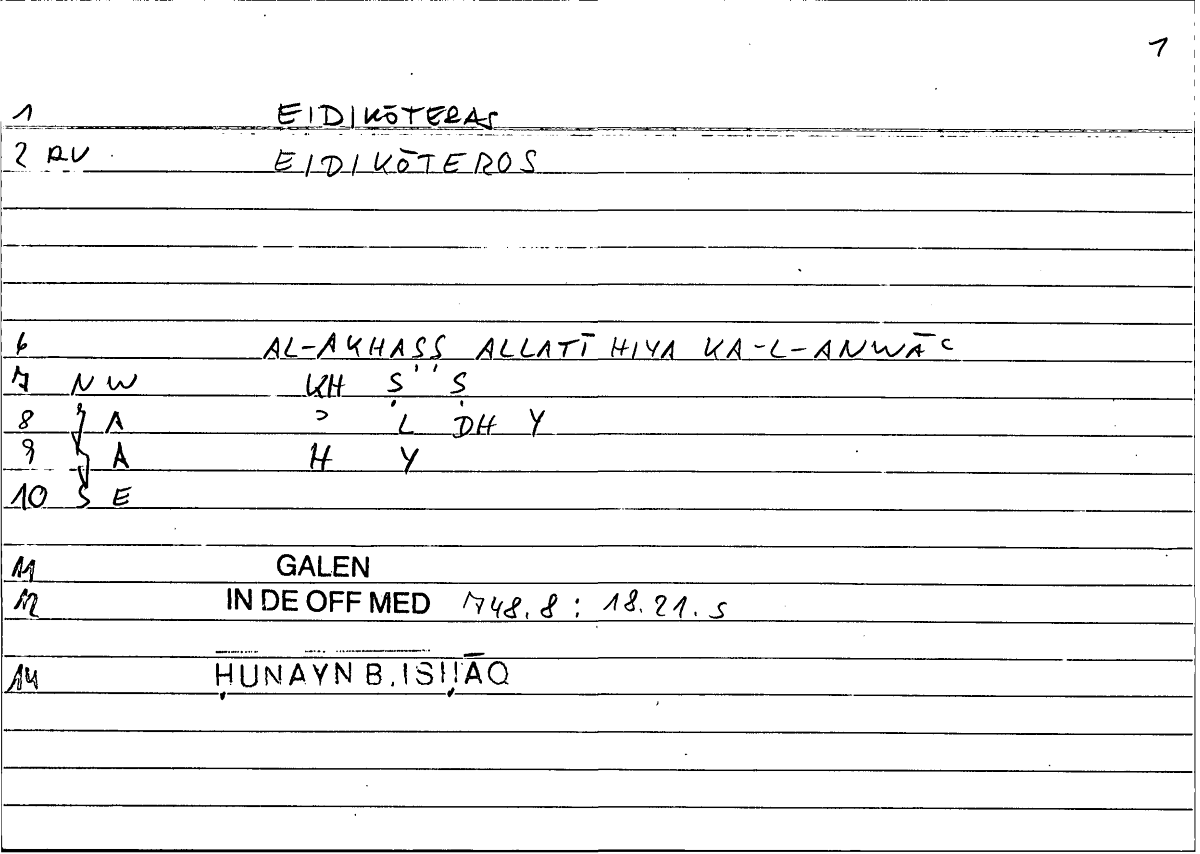 1
1 EIDIKŌTERAS
2 AV EIDIKŌTEROS
6 AL-AKHAṢṢ ALLATĪ HIYA KA-L-ANWĀʿ
7 NW KH Ṣ Ṣ
8 A ʾ L DH Y
9 A H Y
10 S E
11 GALEN
12 IN DE OFF MED 748.8 : 18.21.5
14 ḤUNAYN B. ISḤĀQ